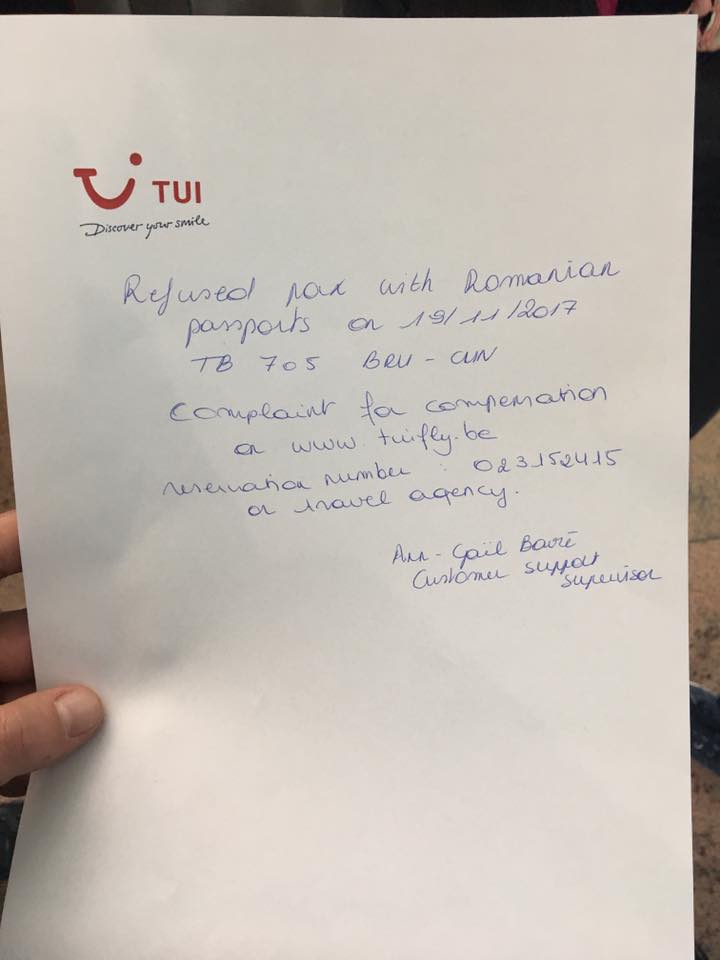 TUI
Discover your smile
Refused pax with Romanian
passports on 19/11/2017
TB 705 BRU - CUN
Complaint for compensation
on www.tuifly.be
reservation number : 023152415
or travel agency.
Ann - Gaël
Customer support
supervisor